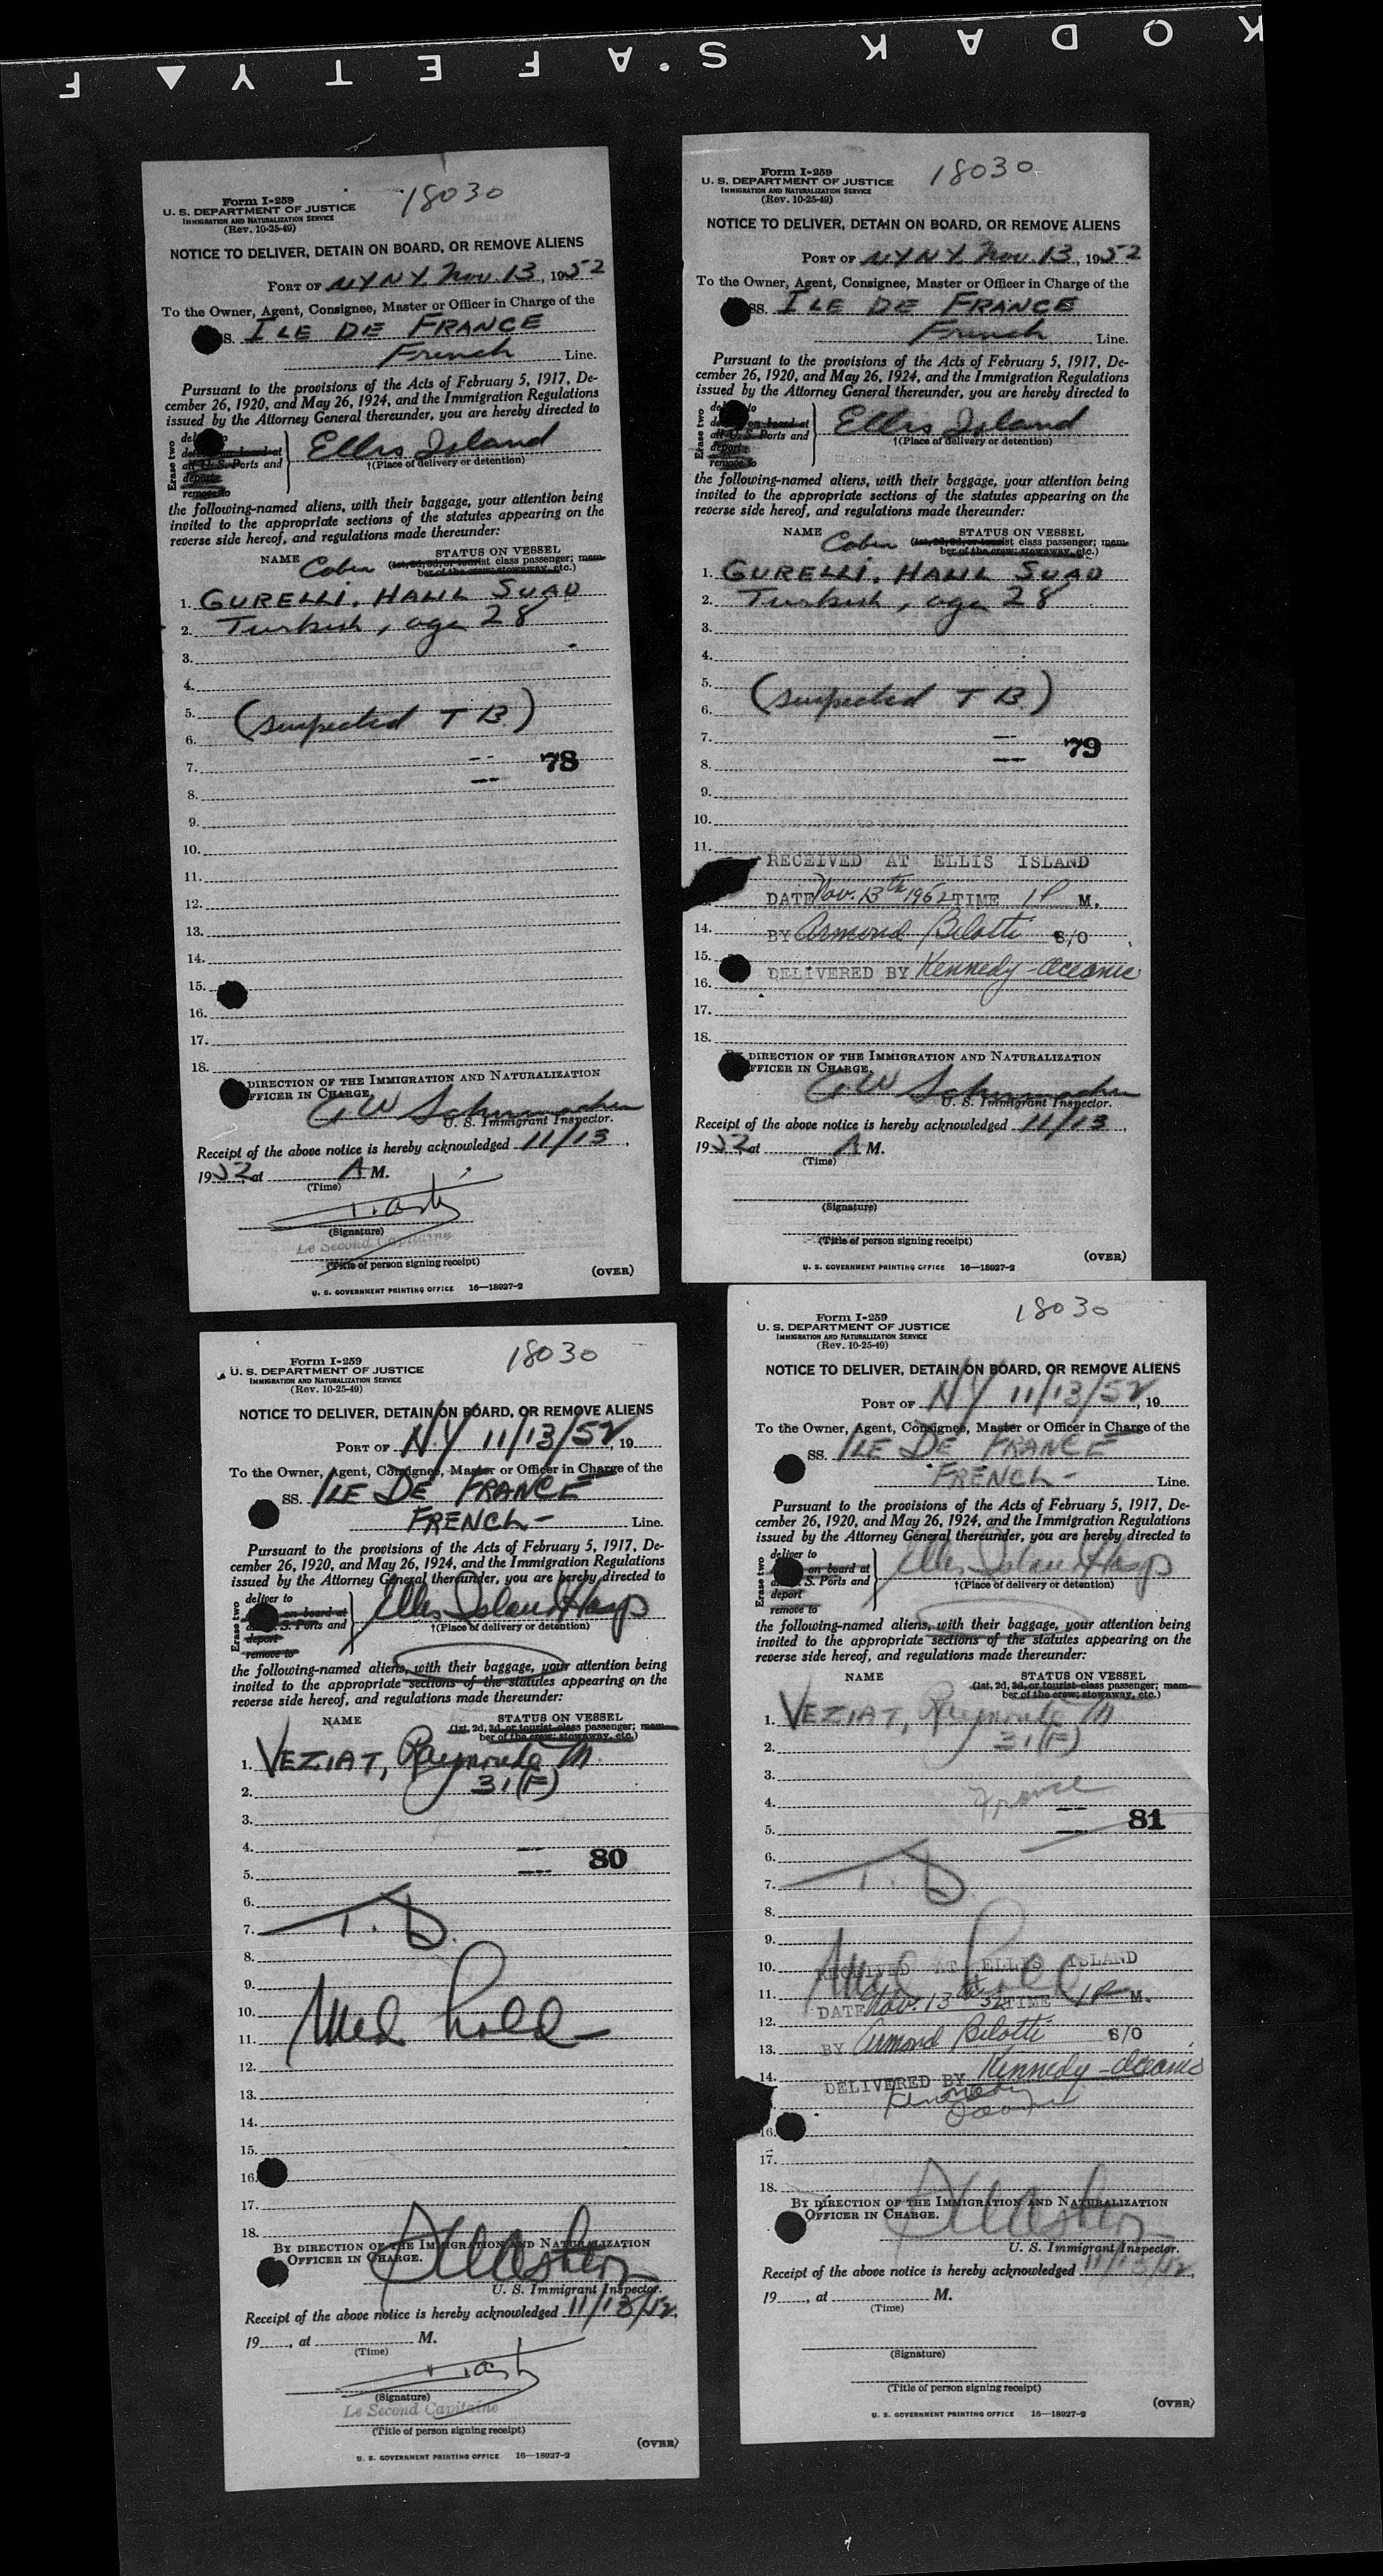 KODAK S.AFETY ▲ F
Form I-259
U. S. DEPARTMENT OF JUSTICE
IMMIGRATION AND NATURALIZATION SERVICE
(Rev. 10-25-49)
18030
NOTICE TO DELIVER, DETAIN ON BOARD, OR REMOVE ALIENS
PORT OF NY NY. Nov. 13, 1952
To the Owner, Agent, Consignee, Master or Officer in Charge of the
S. ILE DE FRANCE
French Line.
Pursuant to the provisions of the Acts of February 5, 1917, De-
cember 26, 1920, and May 26, 1924, and the Immigration Regulations
issued by the Attorney General thereunder, you are hereby directed to
Erase two
deliver to
detain on board at
all U. S. Ports and
deport
remove to
Ellis Island
†(Place of delivery or detention)
the following-named aliens, with their baggage, your attention being
invited to the appropriate sections of the statutes appearing on the
reverse side hereof, and regulations made thereunder:
NAME Cabin STATUS ON VESSEL
(1st, 2d, 3d, or tourist class passenger; mem-
ber of the crew; stowaway, etc.)
1. GURELLI, HALIL SUAD
2. Turkish, age 28
3.
4.
5. (suspected T B.)
6.
7. 78
8.
9.
10.
11.
12.
13.
14.
15.
16.
17.
18.
DIRECTION OF THE IMMIGRATION AND NATURALIZATION
FFICER IN CHARGE.
G W Schumacher
U. S. Immigrant Inspector.
Receipt of the above notice is hereby acknowledged 11/13,
1952, at A M.
(Time)
(Signature)
Le Second Capitaine
(Title of person signing receipt)
(OVER)
U. S. GOVERNMENT PRINTING OFFICE 16—18927-2
Form I-259
U. S. DEPARTMENT OF JUSTICE
IMMIGRATION AND NATURALIZATION SERVICE
(Rev. 10-25-49)
18030
NOTICE TO DELIVER, DETAIN ON BOARD, OR REMOVE ALIENS
PORT OF NY NY. Nov. 13, 1952
To the Owner, Agent, Consignee, Master or Officer in Charge of the
SS. ILE DE FRANCE
French Line.
Pursuant to the provisions of the Acts of February 5, 1917, De-
cember 26, 1920, and May 26, 1924, and the Immigration Regulations
issued by the Attorney General thereunder, you are hereby directed to
Erase two
de to
de on board at
all U. S. Ports and
deport
remove to
Ellis Island
†(Place of delivery or detention)
the following-named aliens, with their baggage, your attention being
invited to the appropriate sections of the statutes appearing on the
reverse side hereof, and regulations made thereunder:
NAME Cabin STATUS ON VESSEL
(1st, 2d, 3d, or tourist class passenger; mem-
ber of the crew; stowaway, etc.)
1. GURELLI, HALIL SUAD
2. Turkish, age 28
3.
4.
5. (suspected T B.)
6.
7. 79
8.
9.
10.
11.
RECEIVED AT ELLIS ISLAND
DATE Nov. 13th 1952 TIME 1 P M.
14.
BY Armond Bilotti S/O
15.
DELIVERED BY Kennedy - Oceanic
16.
17.
18.
BY DIRECTION OF THE IMMIGRATION AND NATURALIZATION
FFICER IN CHARGE.
G W Schumacher
U. S. Immigrant Inspector.
Receipt of the above notice is hereby acknowledged 11/13,
1952, at A M.
(Time)
(Signature)
(Title of person signing receipt)
(OVER)
U. S. GOVERNMENT PRINTING OFFICE 16—18927-2
Form I-259
U. S. DEPARTMENT OF JUSTICE
IMMIGRATION AND NATURALIZATION SERVICE
(Rev. 10-25-49)
18030
NOTICE TO DELIVER, DETAIN ON BOARD, OR REMOVE ALIENS
PORT OF NY 11/13/52, 19
To the Owner, Agent, Consignee, Master or Officer in Charge of the
SS. ILE DE FRANCE
FRENCH - Line.
Pursuant to the provisions of the Acts of February 5, 1917, De-
cember 26, 1920, and May 26, 1924, and the Immigration Regulations
issued by the Attorney General thereunder, you are hereby directed to
Erase two
deliver to
on board at
S. Ports and
deport
remove to
Ellis Island Hosp
†(Place of delivery or detention)
the following-named aliens, with their baggage, your attention being
invited to the appropriate sections of the statutes appearing on the
reverse side hereof, and regulations made thereunder:
NAME STATUS ON VESSEL
(1st, 2d, 3d, or tourist class passenger; mem-
ber of the crew; stowaway, etc.)
1. VEZIAT, Raymonde M.
2. 31(F)
3.
4.
5. 80
6.
7. T.B.
8.
9.
10.
11. Med hold
12.
13.
14.
15.
16.
17.
18.
BY DIRECTION OF THE IMMIGRATION AND NATURALIZATION
OFFICER IN CHARGE.
U. S. Immigrant Inspector.
Receipt of the above notice is hereby acknowledged 11/13/52,
19, at M.
(Time)
(Signature)
Le Second Capitaine
(Title of person signing receipt)
(OVER)
U. S. GOVERNMENT PRINTING OFFICE 16—18927-2
Form I-259
U. S. DEPARTMENT OF JUSTICE
IMMIGRATION AND NATURALIZATION SERVICE
(Rev. 10-25-49)
18030
NOTICE TO DELIVER, DETAIN ON BOARD, OR REMOVE ALIENS
PORT OF NY 11/13/52, 19
To the Owner, Agent, Consignee, Master or Officer in Charge of the
SS. ILE DE FRANCE
FRENCH - Line.
Pursuant to the provisions of the Acts of February 5, 1917, De-
cember 26, 1920, and May 26, 1924, and the Immigration Regulations
issued by the Attorney General thereunder, you are hereby directed to
Erase two
deliver to
on board at
S. Ports and
deport
remove to
Ellis Island Hosp
†(Place of delivery or detention)
the following-named aliens, with their baggage, your attention being
invited to the appropriate sections of the statutes appearing on the
reverse side hereof, and regulations made thereunder:
NAME STATUS ON VESSEL
(1st, 2d, 3d, or tourist class passenger; mem-
ber of the crew; stowaway, etc.)
1. VEZIAT, Raymonde M
2. 31(F)
3.
4. France
5. 81
6.
7. T.B.
8.
9.
10. Med hold
RECEIVED AT ELLIS ISLAND
11.
DATE Nov. 13th 52 TIME 1 P M.
12.
13.
BY Armond Bilotti S/O
14.
DELIVERED BY Kennedy - Oceanic
Kennedy
Oceanic
16.
17.
18.
BY DIRECTION OF THE IMMIGRATION AND NATURALIZATION
OFFICER IN CHARGE.
U. S. Immigrant Inspector.
Receipt of the above notice is hereby acknowledged 11/13/52,
19, at M.
(Time)
(Signature)
(Title of person signing receipt)
(OVER)
U. S. GOVERNMENT PRINTING OFFICE 16—18927-2